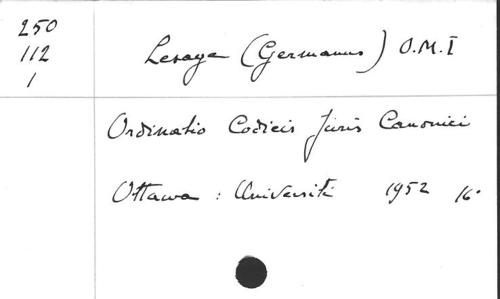 250
112
1
Lesage (Germanus) O.M.I
Ordinatio Codicis Juris Canonici
Ottawa : Université 1952 16°